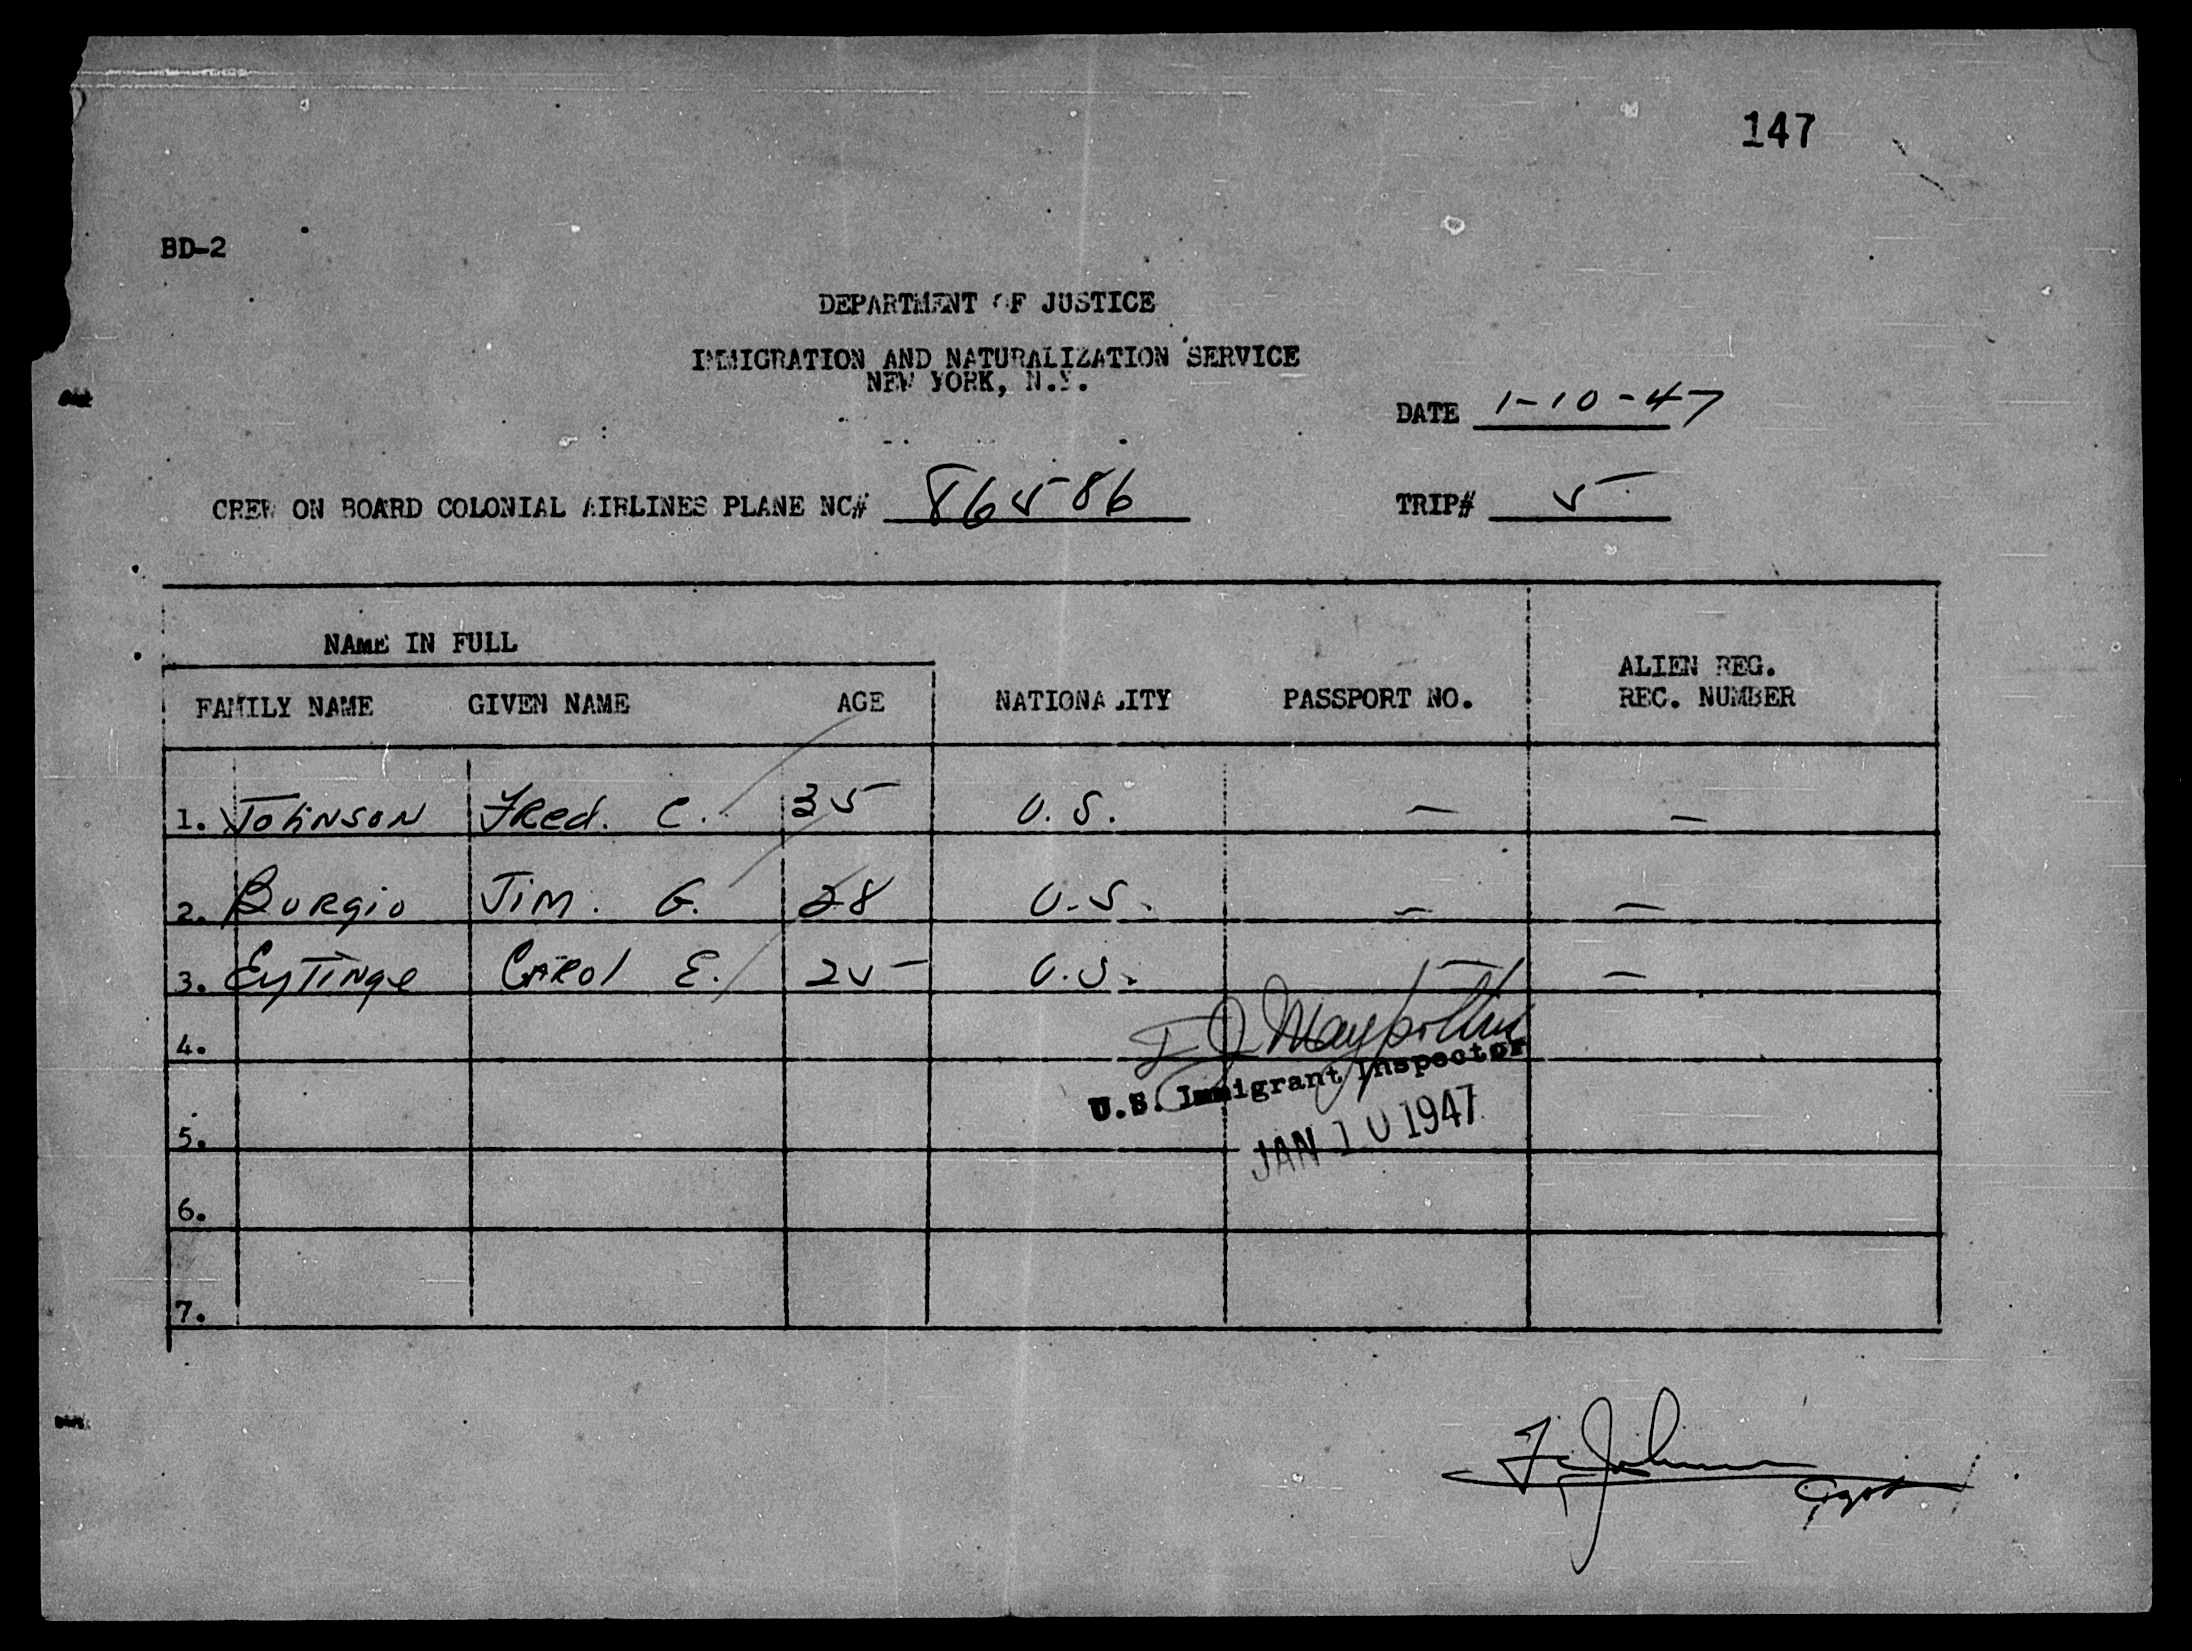 147
BD-2
DEPARTMENT OF JUSTICE
IMMIGRATION AND NATURALIZATION SERVICE
NEW YORK, N.Y.
DATE 1-10-47
CREW ON BOARD COLONIAL AIRLINES PLANE NC# 86586 TRIP# 5
NAME IN FULL
FAMILY NAME GIVEN NAME AGE NATIONALITY PASSPORT NO. ALIEN REG. REC. NUMBER
1. Johnson Fred. C. 35 U.S. — —
2. Burgio Jim. G. 28 U.S. — —
3. Eytinge Carol E. 25 U.S. — —
4.
U.S. Immigrant Inspector
JAN 10 1947
5.
6.
7.
F. Johnson